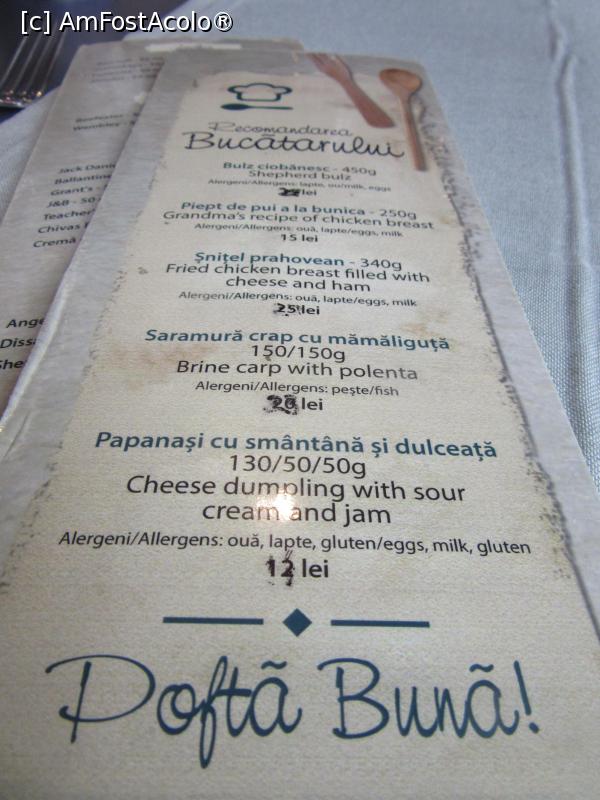 [c] AmFostAcolo®
Recomandarea
Bucătarului
Bulz ciobănesc - 450g
Shepherd bulz
Alergeni/Allergens: lapte, ou/milk, eggs
lei
Piept de pui a la bunica - 250g
Grandma's recipe of chicken breast
Alergeni/Allergens: ouă, lapte/eggs, milk
15 lei
Șnițel prahovean - 340g
Fried chicken breast filled with
cheese and ham
Alergeni/Allergens: ouă, lapte/eggs, milk
25 lei
Saramură crap cu mămăliguță
150/150g
Brine carp with polenta
Alergeni/Allergens: pește/fish
20 lei
Papanași cu smântână și dulceață
130/50/50g
Cheese dumpling with sour
cream and jam
Alergeni/Allergens: ouă, lapte, gluten/eggs, milk, gluten
12 lei
Poftă Bună!
Jack Dani
Ballantine
Grant's -
J&B - 50
Teacher'
Chivas
Cremă
Ange
Dissa
She